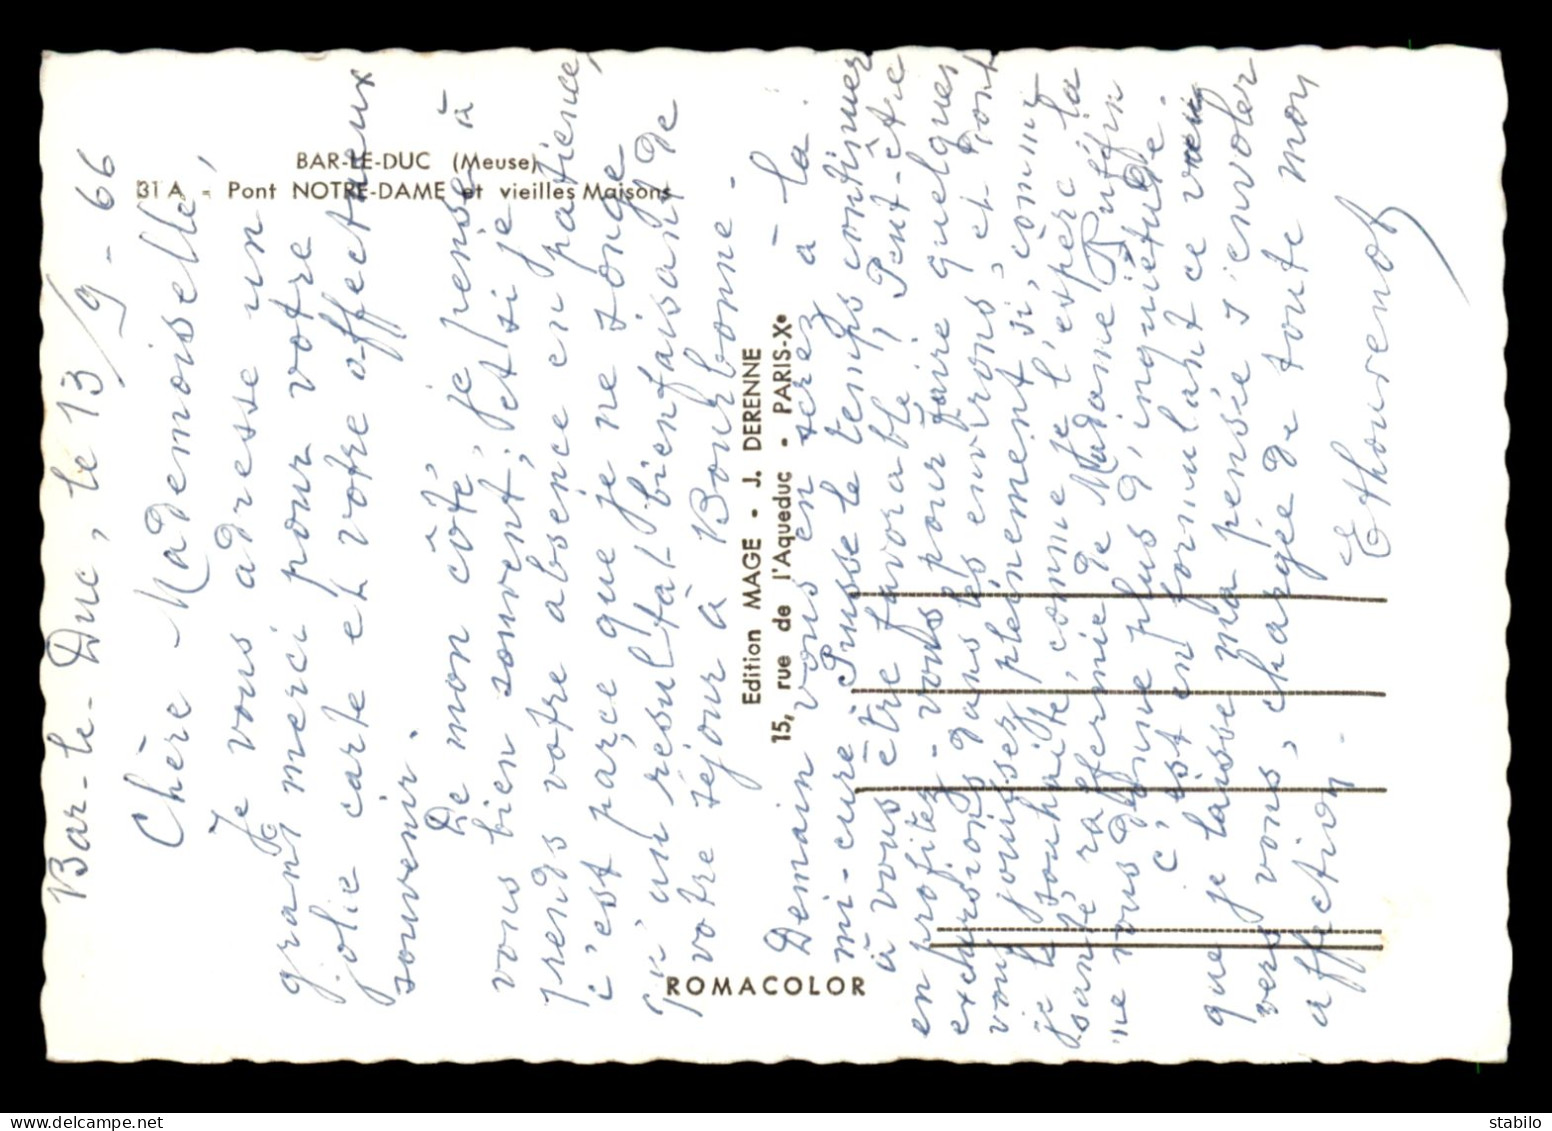 BAR-LE-DUC (Meuse)
31 A - Pont NOTRE-DAME et vieilles Maisons
Edition MAGE - J. DERENNE
15, rue de l'Aqueduc - PARIS-Xe
ROMACOLOR
Bar-le-Duc, le 13/9-66
Chère Mademoiselle,
Je vous adresse un
grand merci pour votre
jolie carte et votre affectueux
souvenir.
De mon côté, je pense à
vous bien souvent; et si je
prends votre absence en patience,
c'est parce que je ne songe
qu'au résultat bienfaisant de
votre séjour à Bourbonne.
Demain vous en serez à la
mi-cure. Puisse le temps continuer
à vous être favorable! Peut-être
en profitez-vous pour faire quelques
excursions dans les environs, et dont
vous jouissez pleinement si, comme
je le souhaite, comme je l'espère la
santé raffermie de Madame
ne vous donne plus d'inquiétude.
C'est en formulant ce vœu
que je laisse ma pensée s'envoler
vers vous, chargée de toute mon
affection.
E Thouvenot
stabilo